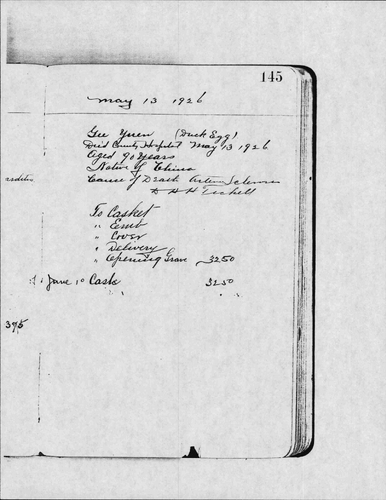 145
May 13 1926
Gee Yuen (Duck Egg)
Died County Hospital May 13 1926
Aged 90 years
Native of China
Cause of Death Arterio Sclerosis
Dr H H
To Casket
" Emb
" Cover
" Delivery
" Opening Grave 3250
June 10 Cash 3250
395